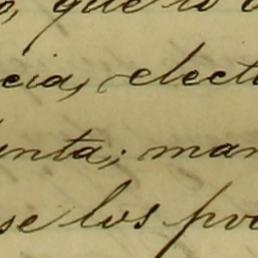 que lo
cia, elect
unta; man
se los pro